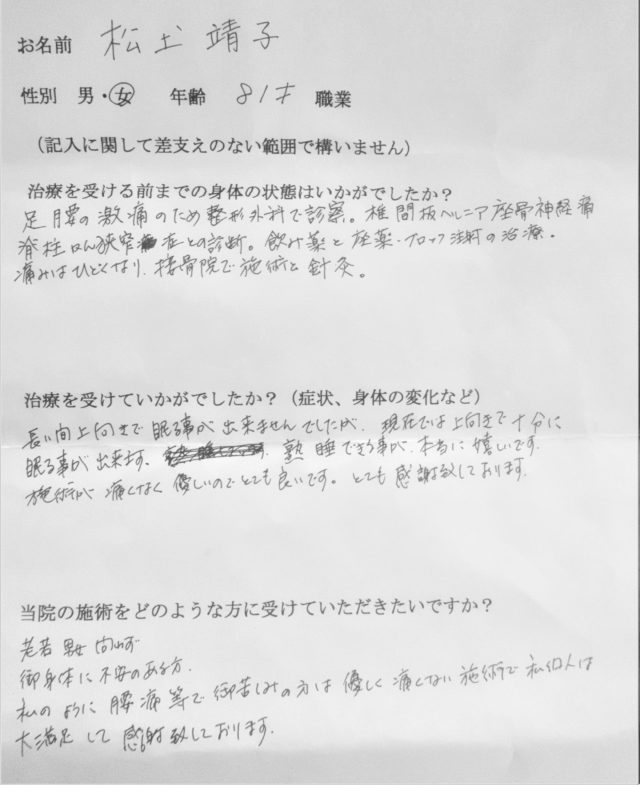 お名前 松土 靖子
性別 男・女 年齢 81才 職業
（記入に関して差支えのない範囲で構いません）
治療を受ける前までの身体の状態はいかがでしたか？
足腰の激痛のため整形外科で診察。椎間板ヘルニア座骨神経痛
脊柱かん狭窄症との診断。飲み薬と座薬・ブロック注射の治療。
痛みはひどくなり、接骨院で施術と針灸。
治療を受けていかがでしたか？（症状、身体の変化など）
長い間上向きで眠る事が出来ませんでしたが、現在では上向きで十分に
眠る事が出来ます。熟睡できる事が、本当に嬉しいです。
施術が痛くなく優しいのでとても良いです。とても感謝致しております。
当院の施術をどのような方に受けていただきたいですか？
老若男女問わず
御身体に不安のある方。
私のように腰痛等で御苦しみの方は優しく痛くない施術で私個人は
大満足して感謝致しております。